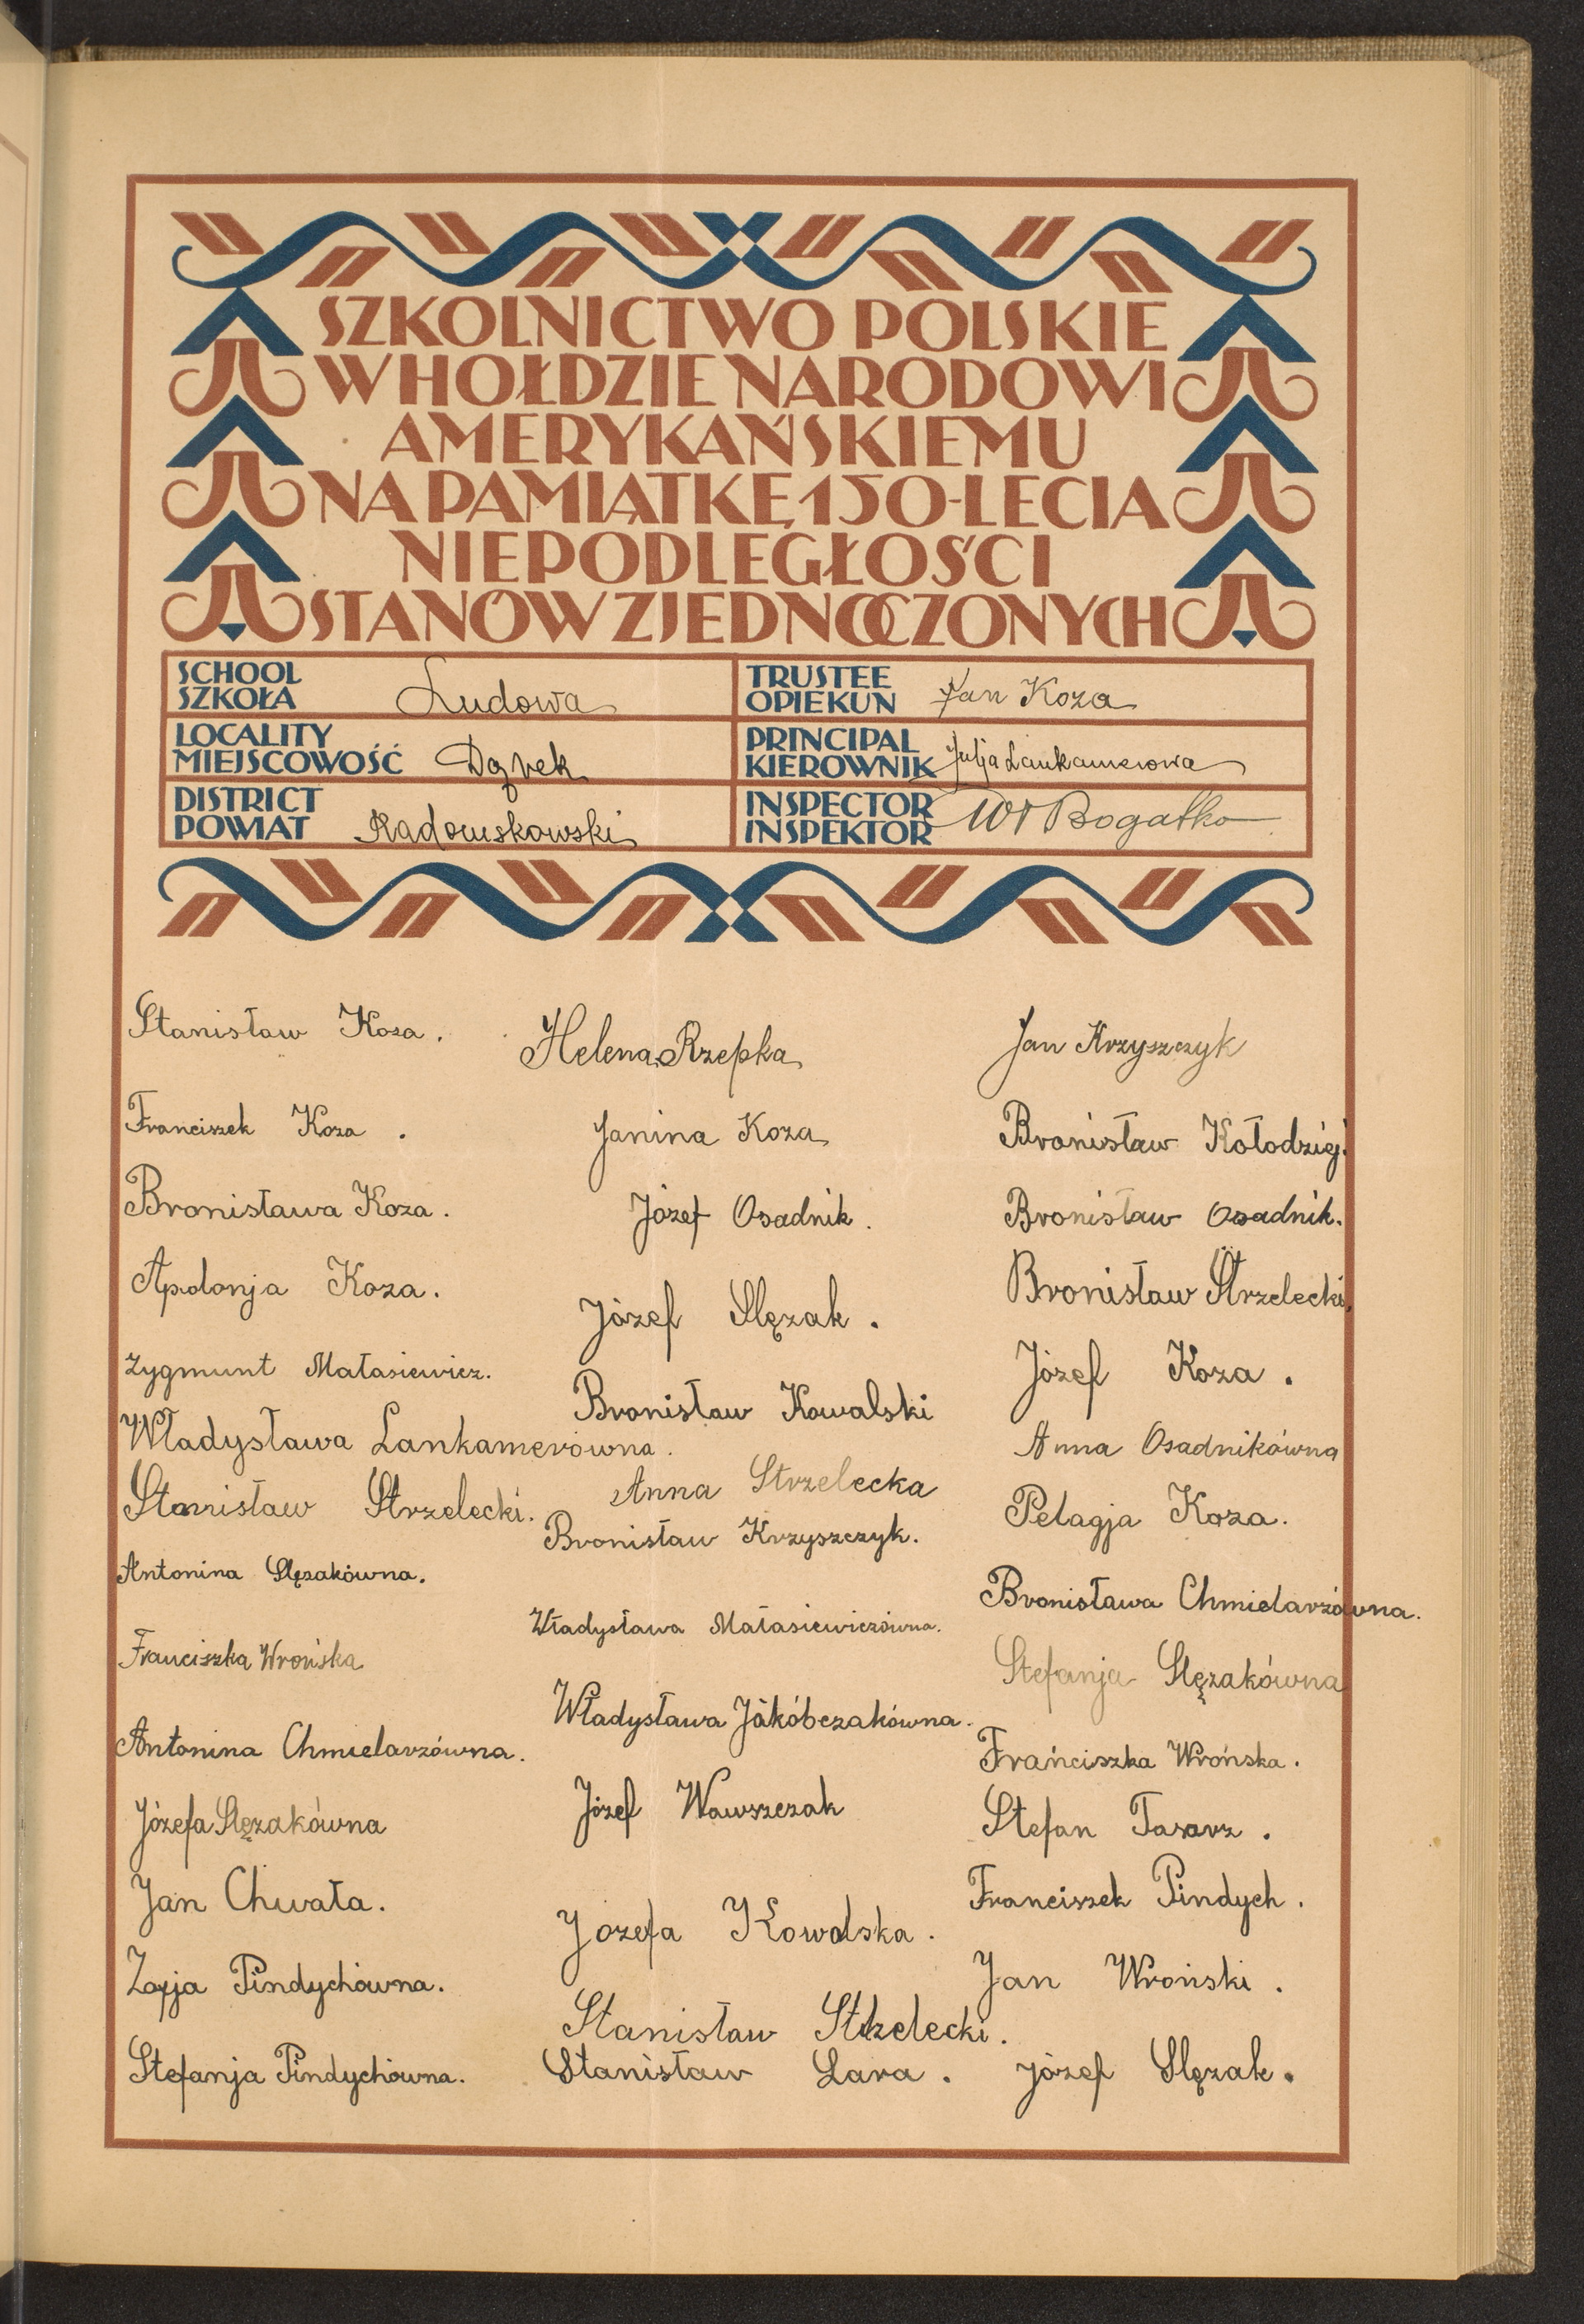 SZKOLNICTWO POLSKIE
W HOŁDZIE NARODOWI
AMERYKAŃSKIEMU
NA PAMIĄTKĘ 150-LECIA
NIEPODLEGŁOŚCI
STANÓW ZJEDNOCZONYCH
SCHOOL
SZKOŁA Ludowa
TRUSTEE
OPIEKUN Jan Koza
LOCALITY
MIEJSCOWOŚĆ Dąbek
PRINCIPAL
KIEROWNIK Julja Lankamerowa
DISTRICT
POWIAT Radomskowski
INSPECTOR
INSPEKTOR Wł Bogatko
Stanisław Koza.
Franciszek Koza.
Bronisława Koza.
Apolonja Koza.
Zygmunt Małasiewicz.
Władysława Lankamerówna.
Stanisław Strzelecki.
Antonina Ślęzakówna.
Franciszka Wrońska
Antonina Chmielarzówna.
Józefa Ślęzakówna
Jan Chwała.
Zofja Pindychówna.
Stefanja Pindychówna.
Helena Rzepka
Janina Koza
Józef Osadnik.
Józef Slęzak.
Bronisław Kowalski
Anna Strzelecka
Bronisław Krzyszczyk.
Władysława Małasiewiczówna.
Władysława Jakóbczakówna.
Józef Wawszczak
Jozefa Kowalska.
Stanisław Strzelecki.
Stanisław Lara.
Jan Krzyszczyk
Bronisław Kołodziej.
Bronisław Osadnik.
Bronisław Strzelecki.
Józef Koza.
Anna Osadnikówna
Pelagja Koza.
Bronisława Chmielarzówna.
Stefanja Slęzakówna
Franciszka Wrońska.
Stefan Tararz.
Franciszek Pindych.
Jan Wroński.
Józef Slęzak.